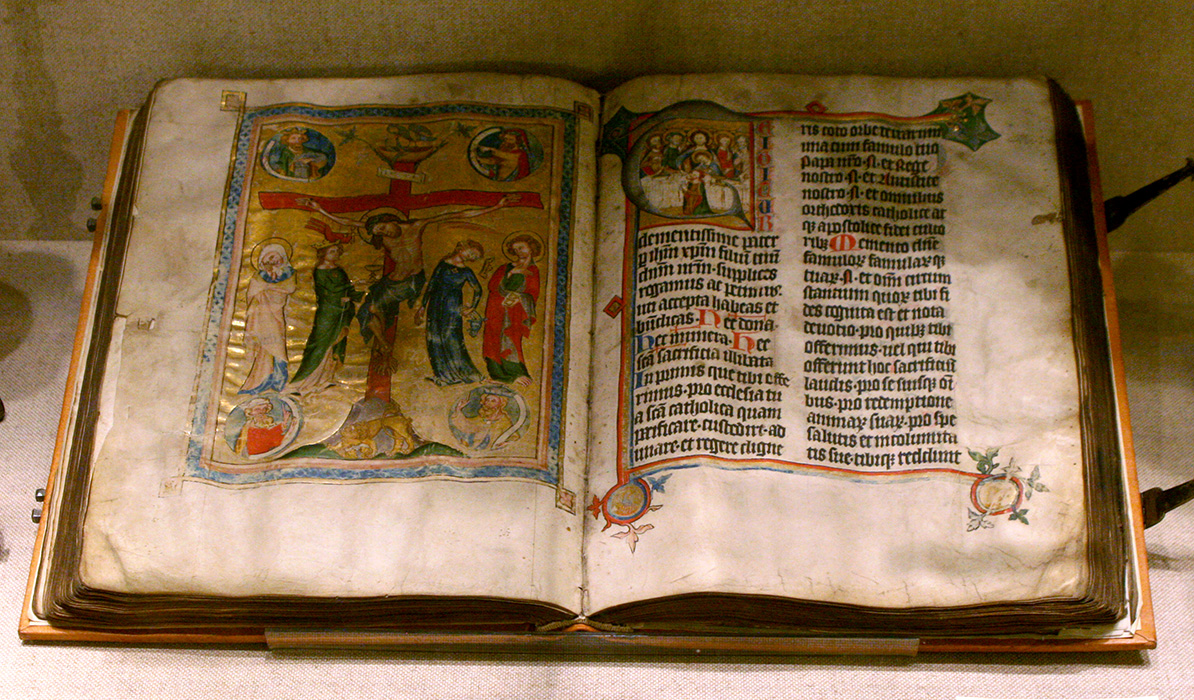 EIGITUR
clementissime pater
p ihm xpm filiū tuū
dnm nrm. supplices
rogamus ac petimus.
uti accepta habeas et
bn̄dicas. Hec dona.
Hec munera. Hec
sc̄a sacrificia illibata
In primis que tibi offe
rimus. pro ecclesia tu
a sc̄a catholica quam
pacificare. custodire. ad
unare. et regere digne
ris toto orbe terrarum
una cum famulo tuo
Papa nr̄o .N. et Rege
nostro .N. et Antistite
nostro .N. et omnibus
orthodoxis catholice at
qꝫ apostolice fidei culto
ribꝫ Memento dn̄e
famuloꝝ famulaꝝqꝫ
tuaꝝ .N. et om̄i circum
stantium quoꝝ tibi fi
des cognita est et nota
deuotio. pro quibꝫ tibi
offerimus. uel qui tibi
offerunt hoc sacrificiū
laudis. pro se suisqꝫ oī
bus. pro redemptione
animaꝝ suaꝝ. pro spe
salutis et incolumita
tis sue. tibiqꝫ reddunt